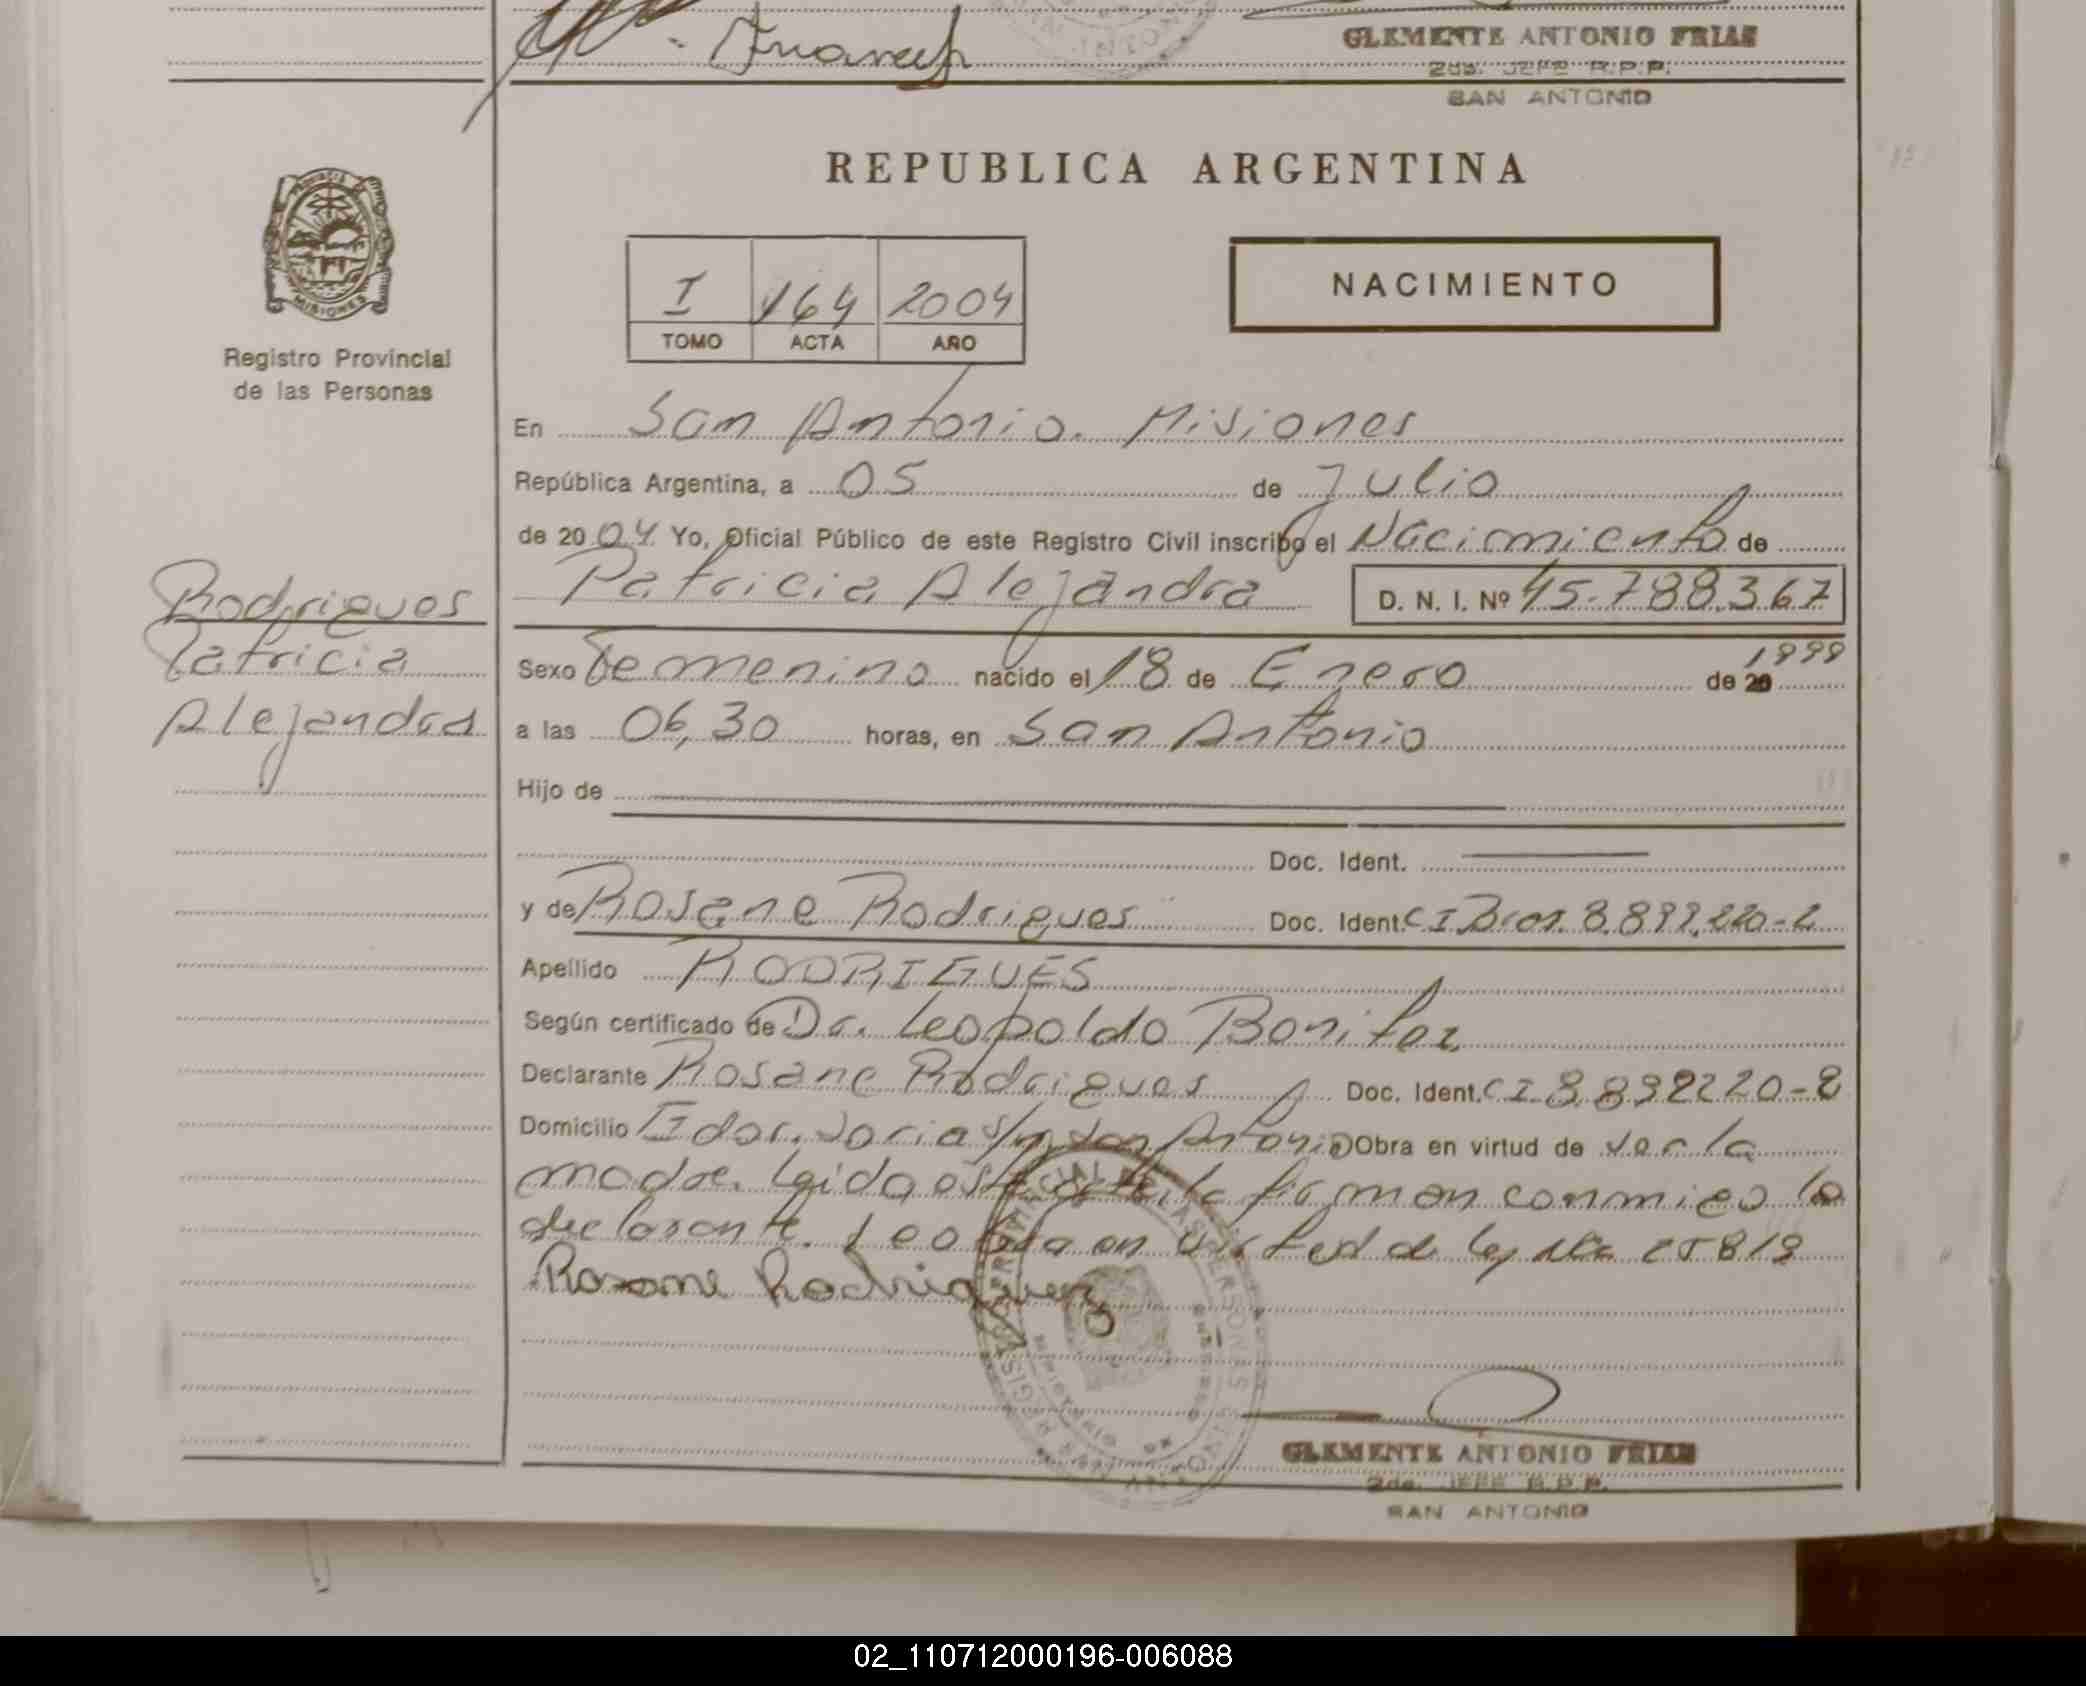 GLEMENTE ANTONIO FRIAS
2do. JEFE R.P.P.
SAN ANTONIO
REPUBLICA ARGENTINA
PROVINCIA
MISIONES
Registro Provincial
de las Personas
I 164 2004
TOMO ACTA AÑO
NACIMIENTO
En San Antonio. Misiones
República Argentina, a 05 de Julio
de 2004 Yo, Oficial Público de este Registro Civil inscribo el Nacimiento de
Patricia Alejandra D. N. I. Nº 45.788.367
Rodrigues
Patricia
Alejandra
Sexo Femenino nacido el 18 de Enero de 20 1999
a las 06,30 horas, en San Antonio
Hijo de
Doc. Ident.
y de Rosane Rodrigues Doc. Ident. CI Bras. 8.892.220-2
Apellido RODRIGUES
Según certificado de Dr. Leopoldo Bonifaz
Declarante Rosane Rodrigues Doc. Ident. CI 8.892220-2
Domicilio Gdor. Soria s/n San Antonio Obra en virtud de ser la
madre. Leida esta acta la firman conmigo la
declarante. Se labra en virtud de ley Nº 25819
Rosane Rodriguez
GLEMENTE ANTONIO FRIAS
2do. JEFE R.P.P.
SAN ANTONIO
02_110712000196-006088